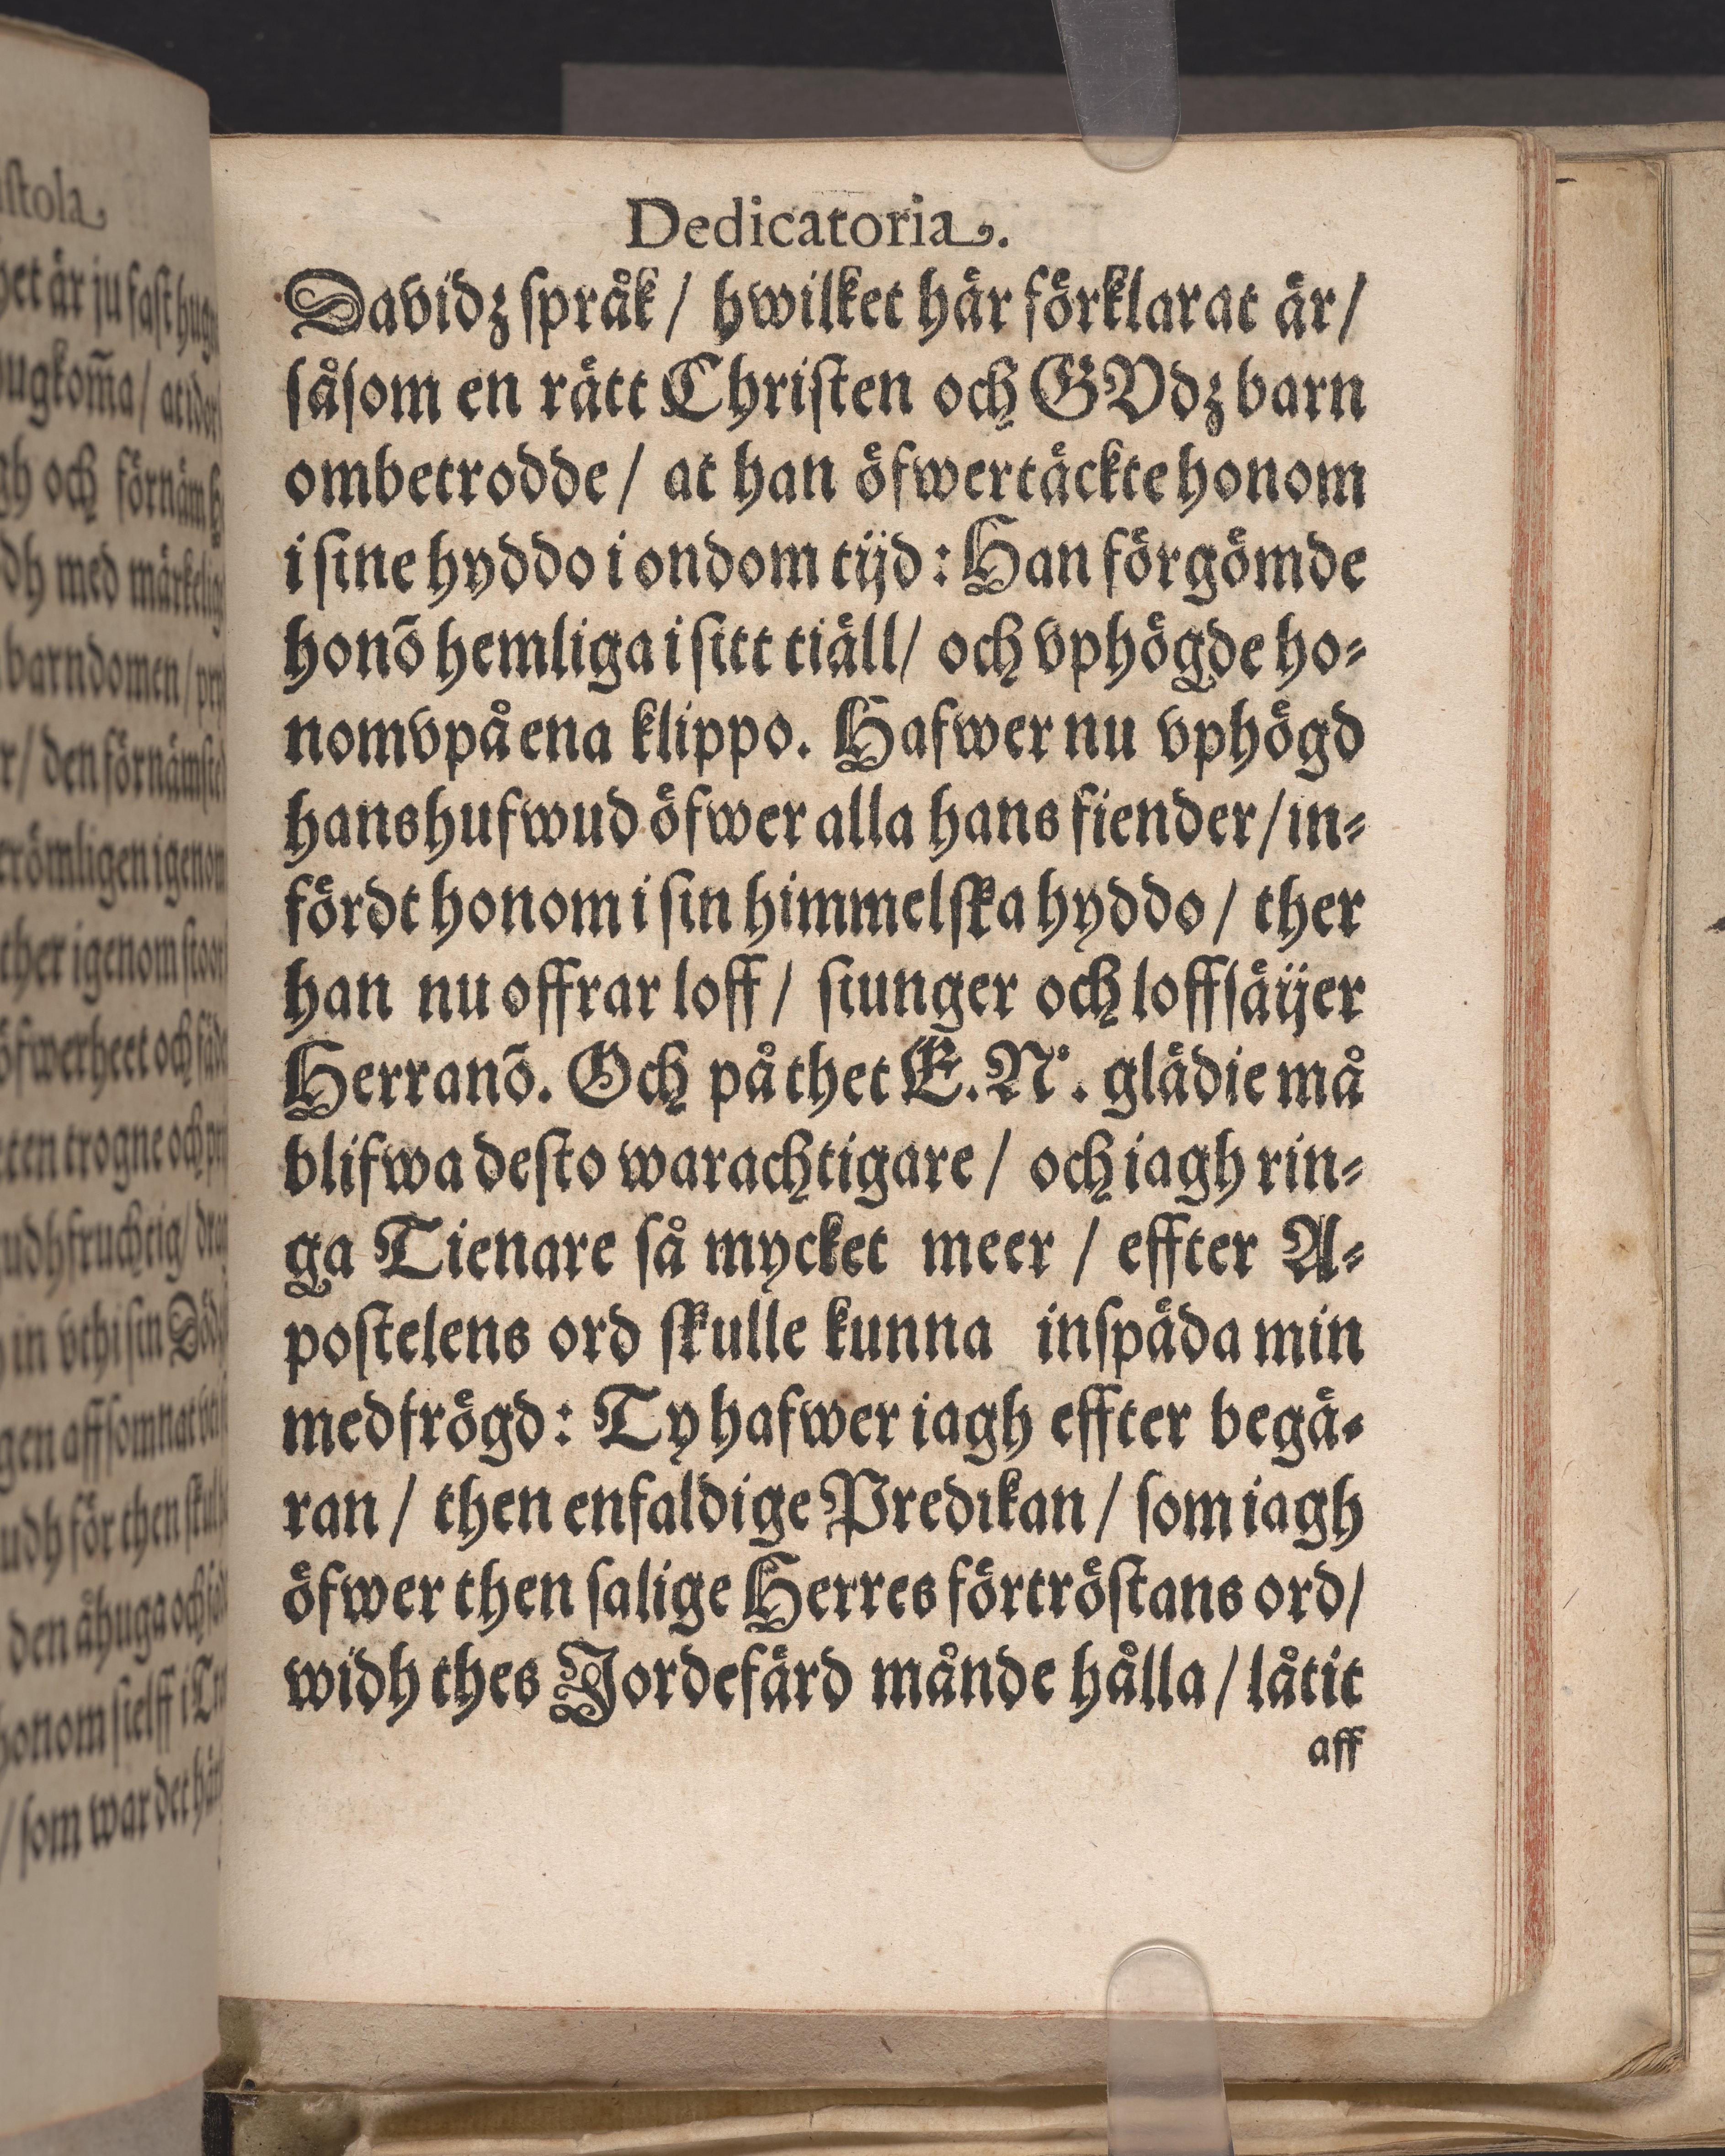 Dedicatoria.
Davidz språk / hwilket här förklarat är/
såsom en rätt Christen och GVdz barn
ombetrodde / at han öfwertäckte honom
i sine hyddo i ondom tijd : Han förgömde
honõ hemliga i sitt tiäll/ och vphögde ho-
nom vpå ena klippo. Hafwer nu vphögd
hans hufwud öfwer alla hans fiender / in-
fördt honom i sin himmelska hyddo / ther
han nu offrar loff / siunger och loffsäijer
Herranõ. Och på thet E. N. glädie må
blifwa desto warachtigare / och iagh rin-
ga Tienare så mycket meer / effter A-
postelens ord skulle kunna inspäda min
medfrögd : Ty hafwer iagh effter begä-
ran / then enfaldige Predikan / som iagh
öfwer then salige Herres förtröstans ord/
widh thes Jordefärd månde hålla / låtit
aff
stola
het är ju fast
ugkom̃a / at
gh och förnäm
dh med
barndomen /
r/ den
römligen igenom
ther igenom
öfwerheet och
ten trogne och
udhfruchtig /
in vthi sin
gen affsomnat
udh för then
den åhuga och
honom sielff i
/ som war det